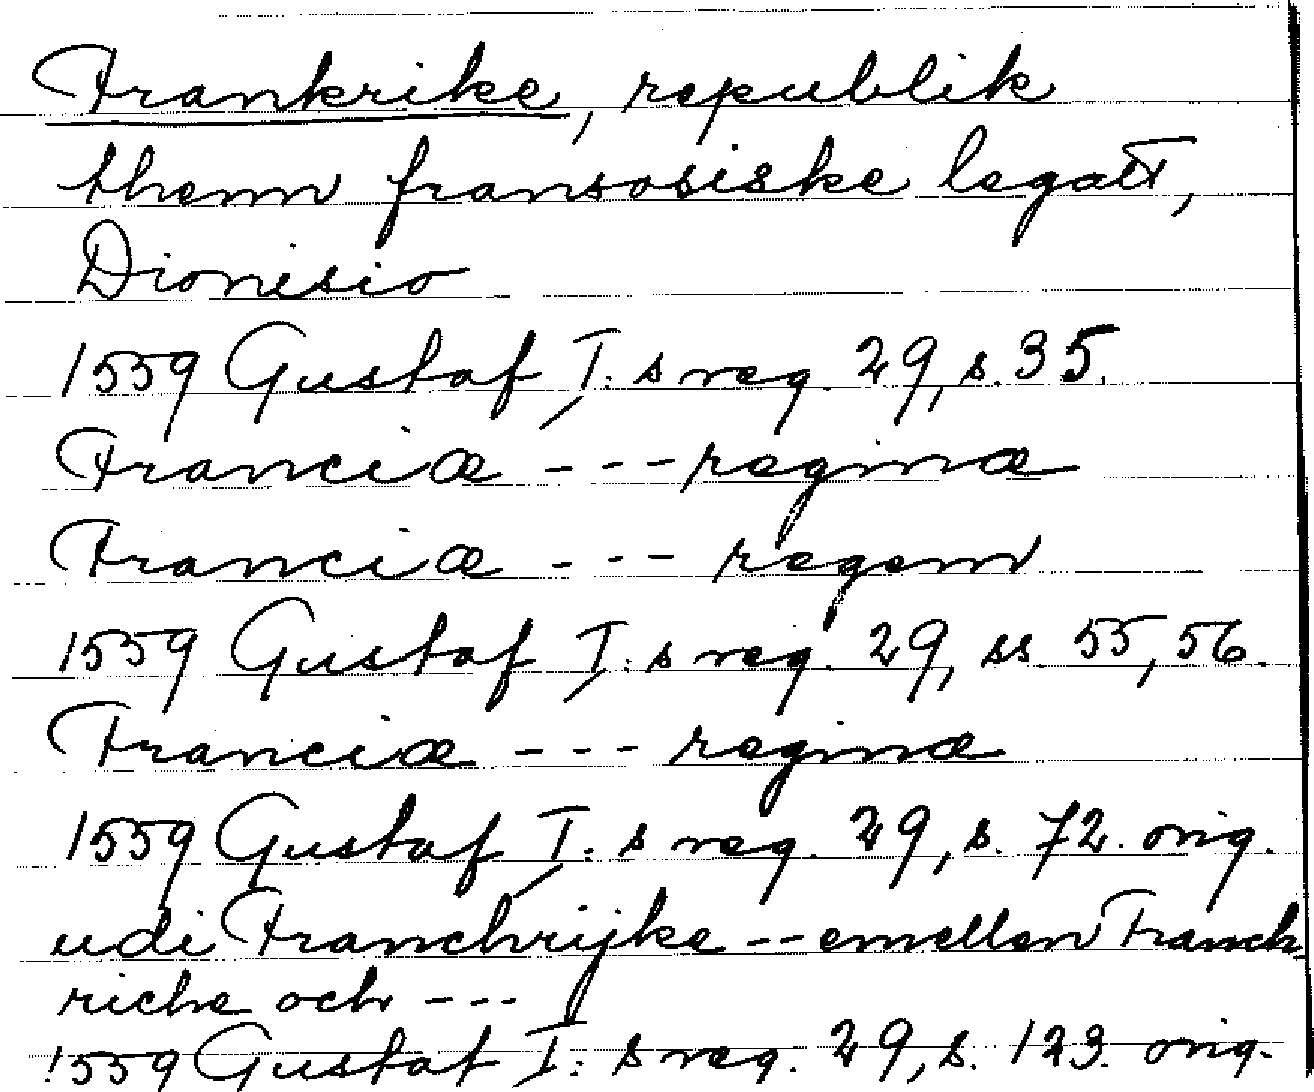 Frankrike, republik
thenn fransosiske legatt,
Dionisio
1559 Gustaf I:s reg. 29, s. 35.
Franciæ --- reginæ
Franciæ --- regem
1559 Gustaf I:s reg. 29, ss. 55, 56.
Franciæ --- reginæ
1559 Gustaf I:s reg. 29, s. 72. orig.
udi Franchrijke -- emellen Franch
riche och ---
1559 Gustaf I:s reg. 29, s. 123. orig.